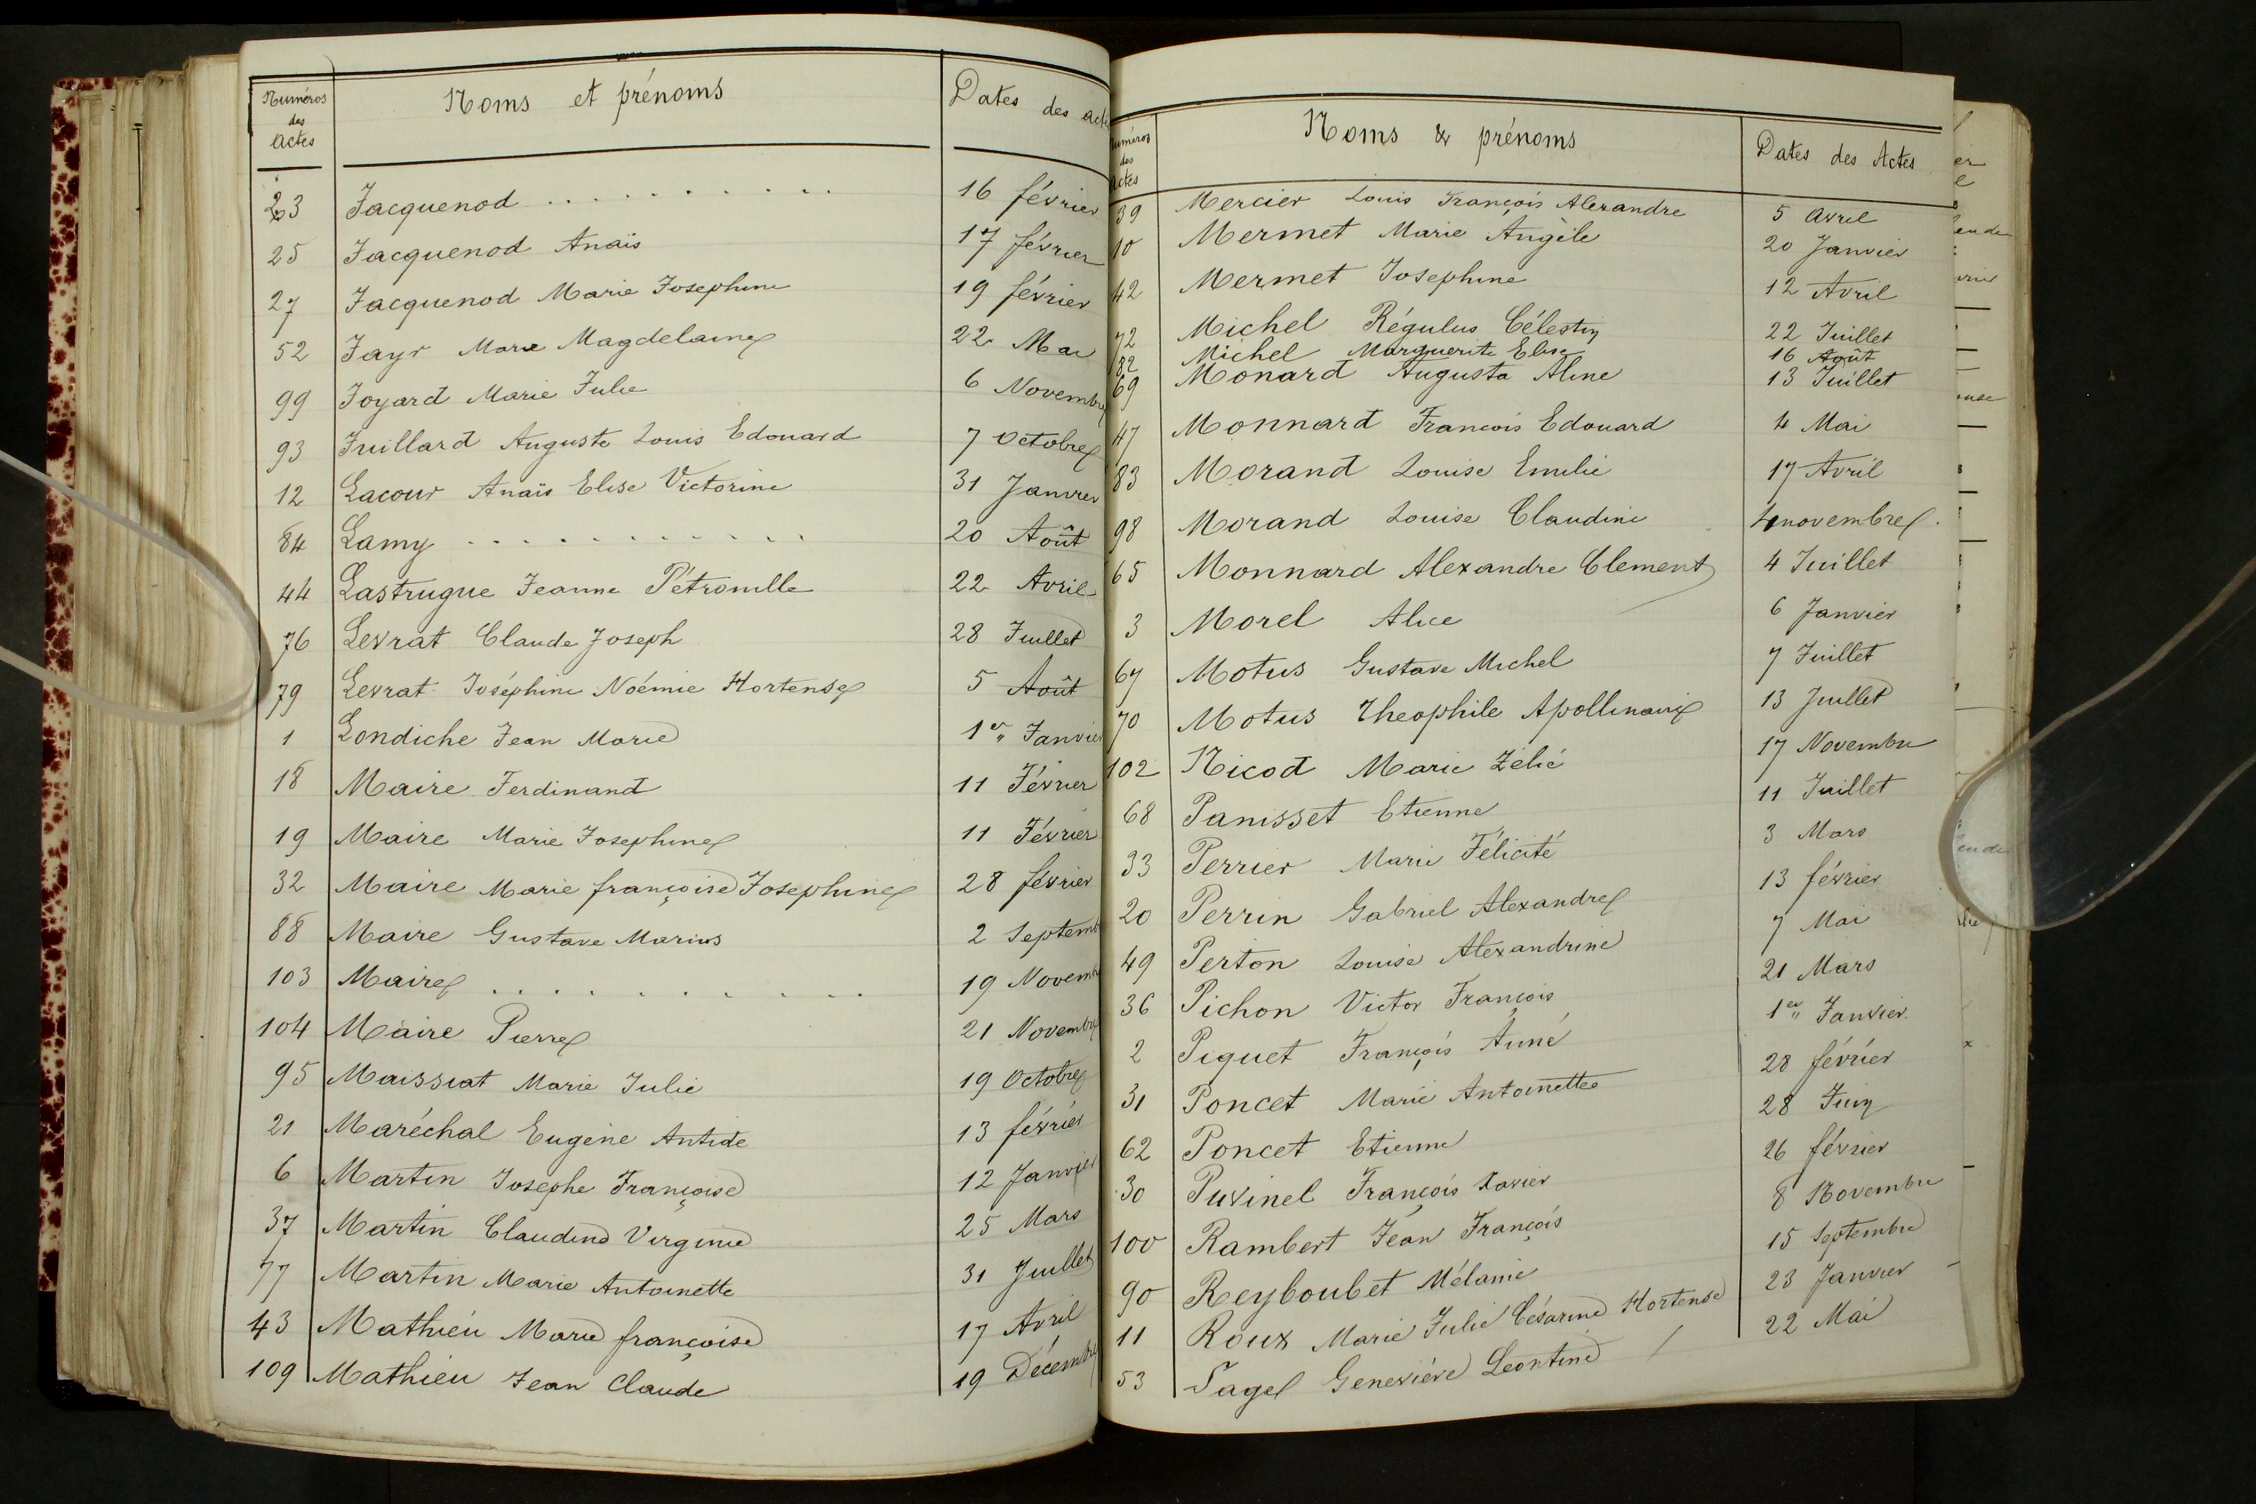 Numéros des Actes Noms et prénoms Dates des act
23 Jacquenod . . . . . . . . . . 16 février
25 Jacquenod Anaïs 17 février
27 Jacquenod Marie Josephine 19 février
52 Jayr Marie Magdelaine 22 Mai
99 Joyard Marie Julie 6 Novembre
93 Juillard Auguste Louis Edouard 7 Octobre
12 Lacour Anaïs Elise Victorine 31 Janvier
84 Lamy . . . . . . . . . . . 20 Août
44 Lastrugue Jeanne Pétronille 22 Avril
76 Levrat Claude Joseph 28 Juillet
79 Levrat Joséphine Noémie Hortense 5 Août
1 Londiche Jean Marie 1er Janvier
18 Maire Ferdinand 11 Février
19 Maire Marie Josephine 11 Février
32 Maire Marie françoise Josephine 28 février
88 Maire Gustave Marius 2 Septemb
103 Maire . . . . . . . . . . . 19 Novemb
104 Maire Pierre 21 Novembre
95 Maissiat Marie Julie 19 Octobre
21 Maréchal Eugène Antide 13 février
6 Martin Josephe Françoise 12 Janvier
37 Martin Claudine Virginie 25 Mars
77 Martin Marie Antoinette 31 Juillet
43 Mathieu Marie françoise 17 Avril
109 Mathieu Jean Claude 19 Décembre
Numéros des Actes Noms & prénoms Dates des Actes
39 Mercier Louis François Alexandre 5 Avril
10 Mermet Marie Angèle 20 Janvier
42 Mermet Josephine 12 Avril
72 Michel Régulus Célestin 22 Juillet
82 Michel Marguerite Elise 16 Août
69 Monard Augusta Aline 13 Juillet
47 Monnard François Edouard 4 Mai
83 Morand Louise Emilie 17 Avril
98 Morand Louise Claudine 4 novembre
65 Monnard Alexandre Clement 4 Juillet
3 Morel Alice 6 Janvier
67 Motus Gustave Michel 7 Juillet
70 Motus Theophile Apollinaire 13 Juillet
102 Nicod Marie Zélie 17 Novembre
68 Panisset Etienne 11 Juillet
33 Perrier Marie Félicité 3 Mars
20 Perrin Gabriel Alexandre 13 février
49 Perton Louise Alexandrine 7 Mai
36 Pichon Victor François 21 Mars
2 Piquet François Aimé 1er Janvier
31 Poncet Marie Antoinette 28 février
62 Poncet Etienne 28 Juin
30 Puvinel François Xavier 26 février
100 Rambert Jean François 8 Novembre
90 Reyboubet Mélanie 15 Septembre
11 Roux Marie Julie Césarine Hortense 23 Janvier
53 Sage Geneviève Leontine 22 Mai